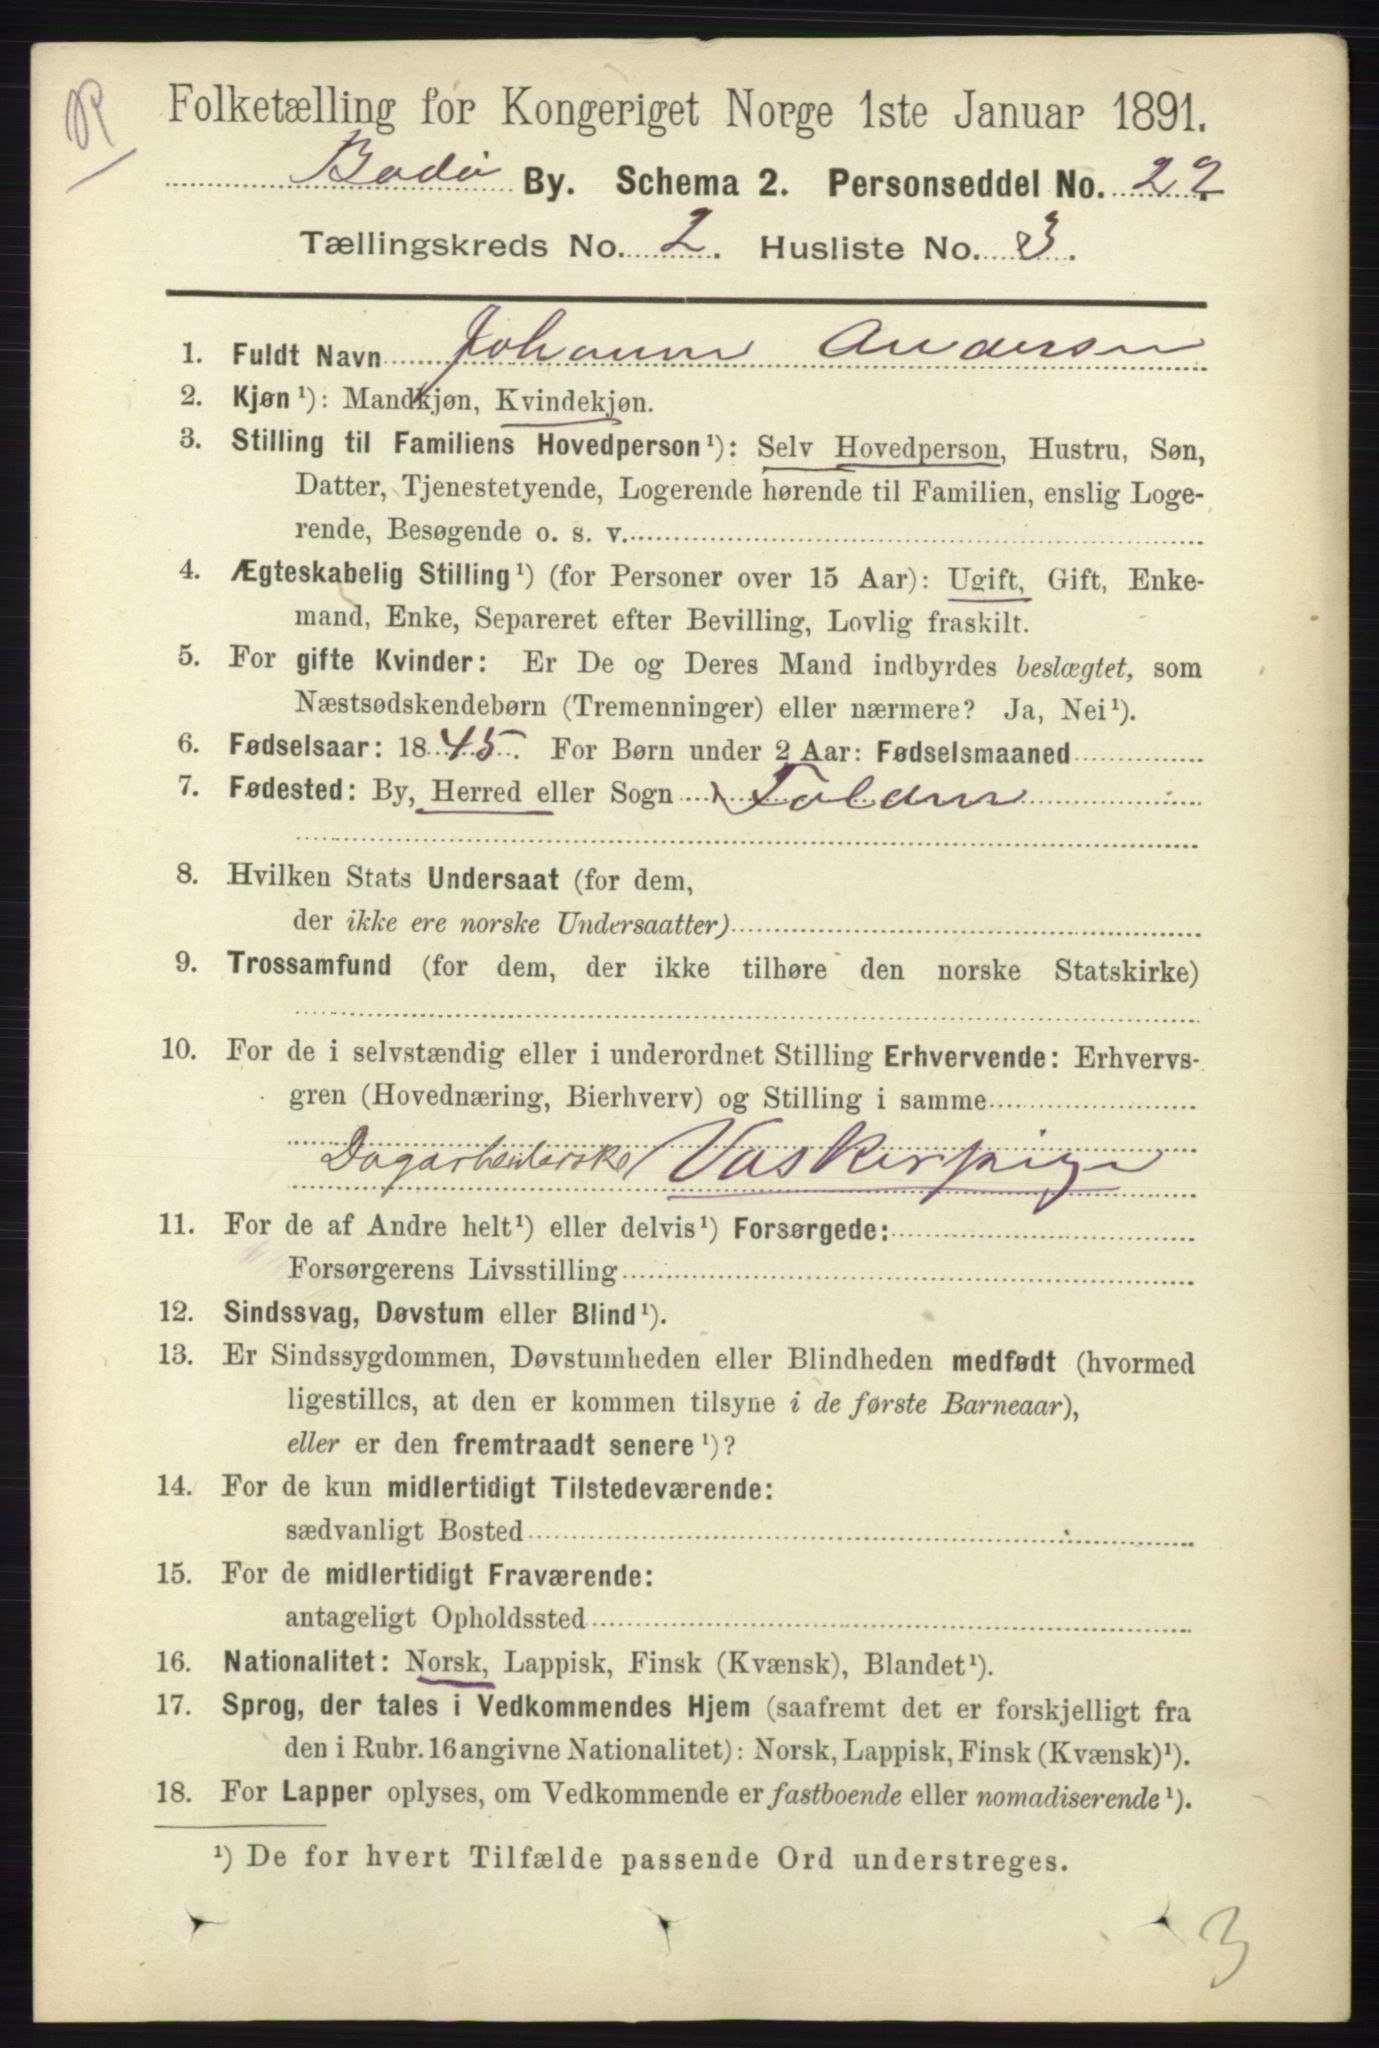 R
Folketælling for Kongeriget Norge 1ste Januar 1891.
Bodø By. Schema 2. Personseddel No. 22
Tællingskreds No. 2. Husliste No. 3.
1. Fuldt Navn Johanne Andersen
2. Kjøn¹): Mandkjøn, Kvindekjøn.
3. Stilling til Familiens Hovedperson¹): Selv Hovedperson, Hustru, Søn,
Datter, Tjenestetyende, Logerende hørende til Familien, enslig Loge-
rende, Besøgende o. s. v.
4. Ægteskabelig Stilling¹) (for Personer over 15 Aar): Ugift, Gift, Enke-
mand, Enke, Separeret efter Bevilling, Lovlig fraskilt.
5. For gifte Kvinder: Er De og Deres Mand indbyrdes beslægtet, som
Næstsødskendebørn (Tremenninger) eller nærmere? Ja, Nei¹).
6. Fødselsaar: 1845. For Børn under 2 Aar: Fødselsmaaned
7. Fødested: By, Herred eller Sogn Folden
8. Hvilken Stats Undersaat (for dem,
der ikke ere norske Undersaatter)
9. Trossamfund (for dem, der ikke tilhøre den norske Statskirke)
10. For de i selvstændig eller i underordnet Stilling Erhvervende: Erhvervs-
gren (Hovednæring, Bierhverv) og Stilling i samme
Dagarbeiderske/Vaskerpige
11. For de af Andre helt¹) eller delvis¹) Forsørgede:
Forsørgerens Livsstilling
12. Sindssvag, Døvstum eller Blind¹).
13. Er Sindssygdommen, Døvstumheden eller Blindheden medfødt (hvormed
ligestilles, at den er kommen tilsyne i de første Barneaar),
eller er den fremtraadt senere¹)?
14. For de kun midlertidigt Tilstedeværende:
sædvanligt Bosted
15. For de midlertidigt Fraværende:
antageligt Opholdssted
16. Nationalitet: Norsk, Lappisk, Finsk (Kvænsk), Blandet¹).
17. Sprog, der tales i Vedkommendes Hjem (saafremt det er forskjelligt fra
den i Rubr. 16 angivne Nationalitet): Norsk, Lappisk, Finsk (Kvænsk)¹).
18. For Lapper oplyses, om Vedkommende er fastboende eller nomadiserende¹).
¹) De for hvert Tilfælde passende Ord understreges.
3